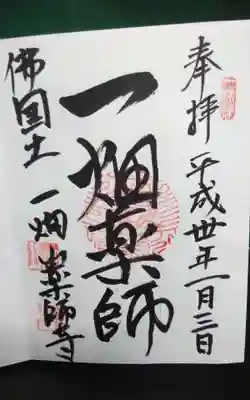 奉拝 平成卅年一月三日
一畑薬師
佛国土 一畑薬師寺